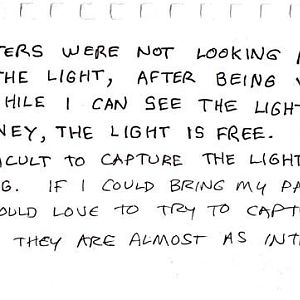 TERS WERE NOT LOOKING
THE LIGHT, AFTER BEING
HILE I CAN SEE THE LIGH
NEY, THE LIGHT IS FREE.
ICULT TO CAPTURE THE LIGHT
G. IF I COULD BRING MY PA
OULD LOVE TO TRY TO CAPT
THEY ARE ALMOST AS INT